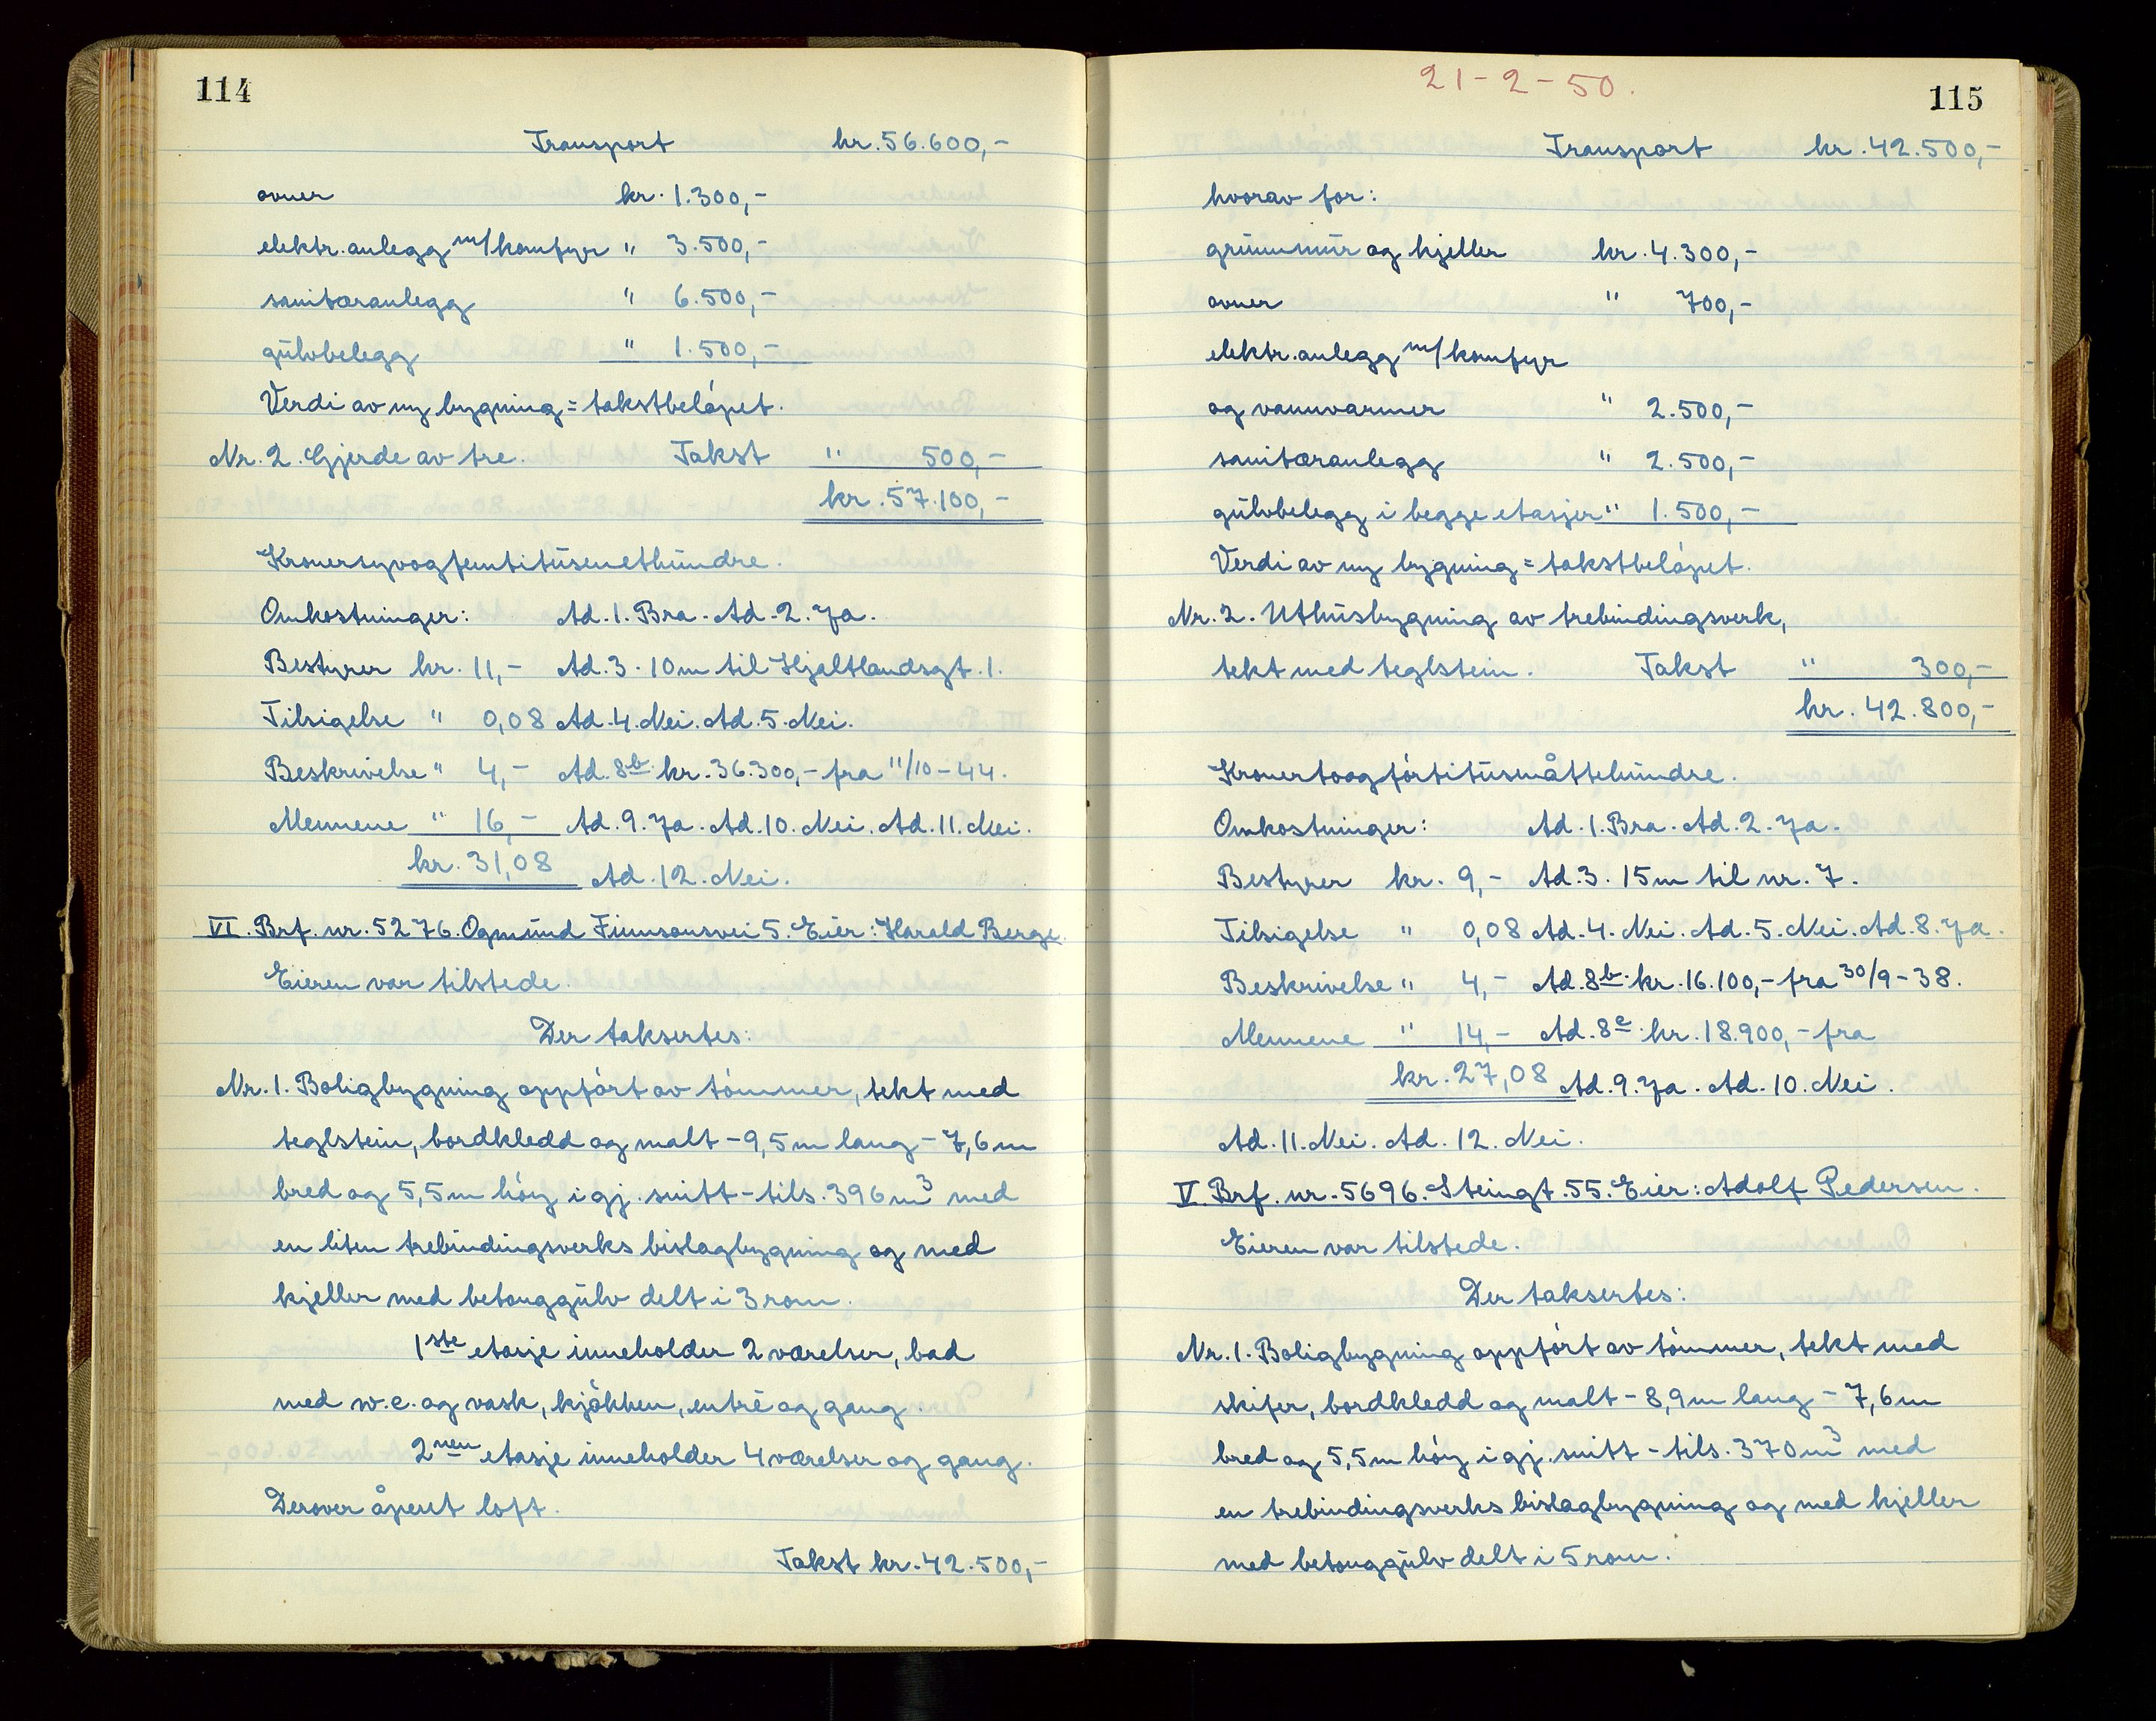 114
Transport kr. 56.600,-
ovner kr. 1.300,-
elektr. anlegg m/komfyr " 3.500,-
sanitæranlegg " 6.500,-
gulvbelegg " 1.500,-
Verdi av ny bygning = takstbeløpet.
Nr. 2. Gjerde av tre. Takst " 500,-
kr. 57.100,-
Kronersyvogfemtitusenethundre.
Omkostninger: Ad. 1. Bra. Ad. 2. Ja.
Bestyrer kr. 11,- Ad. 3. 10m til Hjaltlandsgt. 1.
Tilsigelse " 0,08 Ad. 4. Nei. Ad. 5. Nei.
Beskrivelse " 4,- Ad. 8b. kr. 36.300,- fra 11/10-44.
Mennene " 16,- Ad. 9. Ja. Ad. 10. Nei. Ad. 11. Nei.
kr. 31,08 Ad. 12. Nei.
VI. Brf. nr. 5276. Ogmund Finnsonsvei 5. Eier: Harald Berge.
Eieren var tilstede.
Der taksertes:
Nr. 1. Boligbygning oppført av tømmer, tekt med
teglstein, bordkledd og malt - 9,5m lang - 7,6m
bred og 5,5m høy i gj. snitt - tils. 396m³ med
en liten trebindingsverks bislagbygning og med
kjeller med betonggulv delt i 3 rom.
1ste etasje inneholder 2 værelser, bad
med w.c. og vask, kjøkken, entré og gang.
2nen etasje inneholder 4 værelser og gang.
Derover åpent loft.
Takst kr. 42.500,-
21-2-50.
115
Transport kr. 42.500,-
hvorav for:
grunnmur og kjeller kr. 4.300,-
ovner " 700,-
elektr. anlegg m/komfyr
og vannvarmer " 2.500,-
sanitæranlegg " 2.500,-
gulvbelegg i begge etasjer " 1.500,-
Verdi av ny bygning = takstbeløpet.
Nr. 2. Uthusbygning av trebindingsverk,
tekt med teglstein. Takst " 300,-
kr. 42.800,-
Kronertoogførtitusenåttehundre.
Omkostninger: Ad. 1. Bra. Ad. 2. Ja.
Bestyrer kr. 9,- Ad. 3. 15m til nr. 7.
Tilsigelse " 0,08 Ad. 4. Nei. Ad. 5. Nei. Ad. 8. Ja.
Beskrivelse " 4,- Ad. 8b. kr. 16.100,- fra 30/9-38.
Mennene " 14,- Ad. 8c. kr. 18.900,- fra
kr. 27,08 Ad. 9. Ja. Ad. 10. Nei.
Ad. 11. Nei. Ad. 12. Nei.
V. Brf. nr. 5696. Steingt. 55. Eier: Adolf Pedersen.
Eieren var tilstede.
Der taksertes:
Nr. 1. Boligbygning oppført av tømmer, tekt med
skifer, bordkledd og malt - 8,9m lang - 7,6m
bred og 5,5m høy i gj. snitt - tils. 370m³ med
en trebindingsverks bislagbygning og med kjeller
med betonggulv delt i 5 rom.